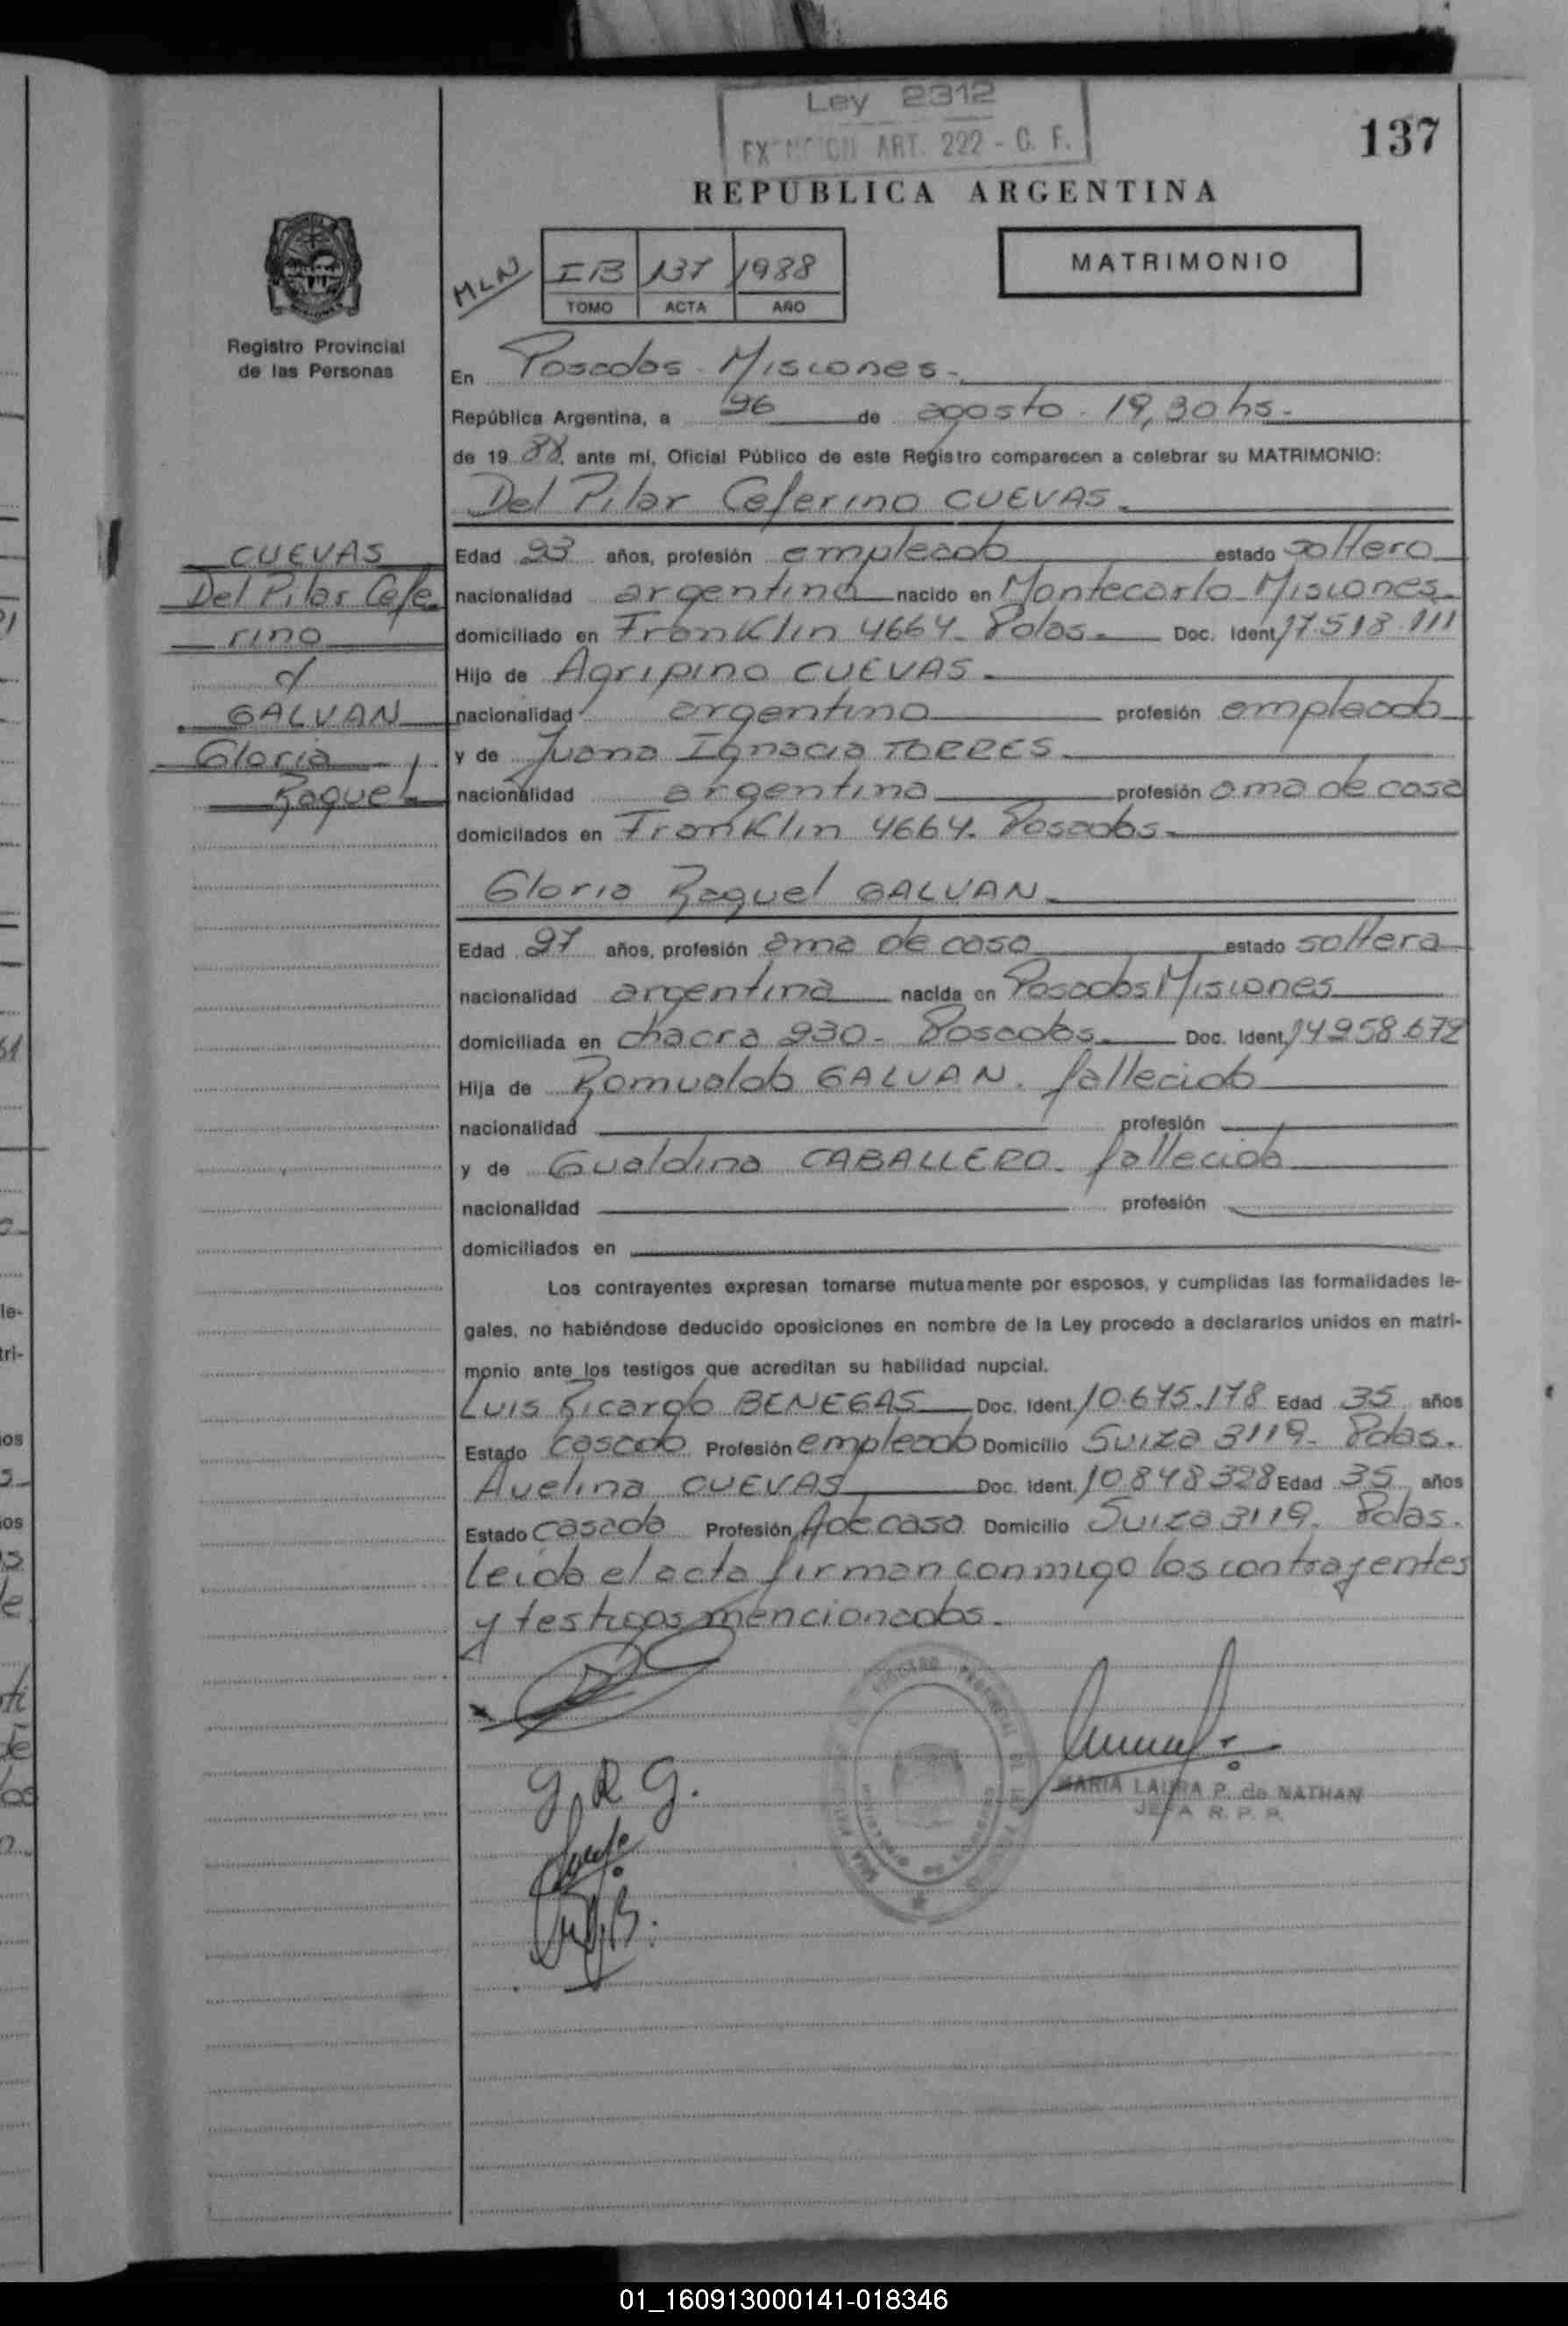 Ley 2312
EXENCION ART. 222 - C. F.
137
REPUBLICA ARGENTINA
MATRIMONIO
MLN
IB 137 1988
TOMO ACTA AÑO
Registro Provincial
de las Personas
En Posadas - Misiones -
República Argentina, a 26 de agosto - 19,30 hs -
de 19 88, ante mí, Oficial Público de este Registro comparecen a celebrar su MATRIMONIO:
Del Pilar Ceferino CUEVAS
CUEVAS
Del Pilar Cefe
rino
c/
GALVAN
Gloria
Raquel
Edad 23 años, profesión empleado estado soltero
nacionalidad argentina nacido en Montecarlo Misiones
domiciliado en Franklin 4664 - Pdas. Doc. Ident. 17.518.111
Hijo de Agripino CUEVAS
nacionalidad argentina profesión empleado
y de Juana Ignacia TORRES
nacionalidad argentina profesión ama de casa
domiciliados en Franklin 4664. Posadas
Gloria Raquel GALVAN
Edad 27 años, profesión ama de casa estado soltera
nacionalidad argentina nacida en Posadas Misiones
domiciliada en chacra 230 - Posadas Doc. Ident. 14258.672
Hija de Romualdo GALVAN. fallecido
nacionalidad profesión
y de Gualdina CABALLERO - fallecida
nacionalidad profesión
domiciliados en
Los contrayentes expresan tomarse mutuamente por esposos, y cumplidas las formalidades le-
gales, no habiéndose deducido oposiciones en nombre de la Ley procedo a declararlos unidos en matri-
monio ante los testigos que acreditan su habilidad nupcial.
Luis Ricardo BENEGAS Doc. Ident. 10.675.178 Edad 35 años
Estado casado Profesión empleado Domicilio Suiza 3119 - Pdas.
Avelina CUEVAS Doc. Ident. 10848328 Edad 35 años
Estado casada Profesión A de casa Domicilio Suiza 3119. Pdas.
Leida el acta firman conmigo los contrayentes
y testigos mencionados.
G. R. G.
MARIA LAURA P. de NATHAN
JEFA R. P. P.
01_160913000141-018346